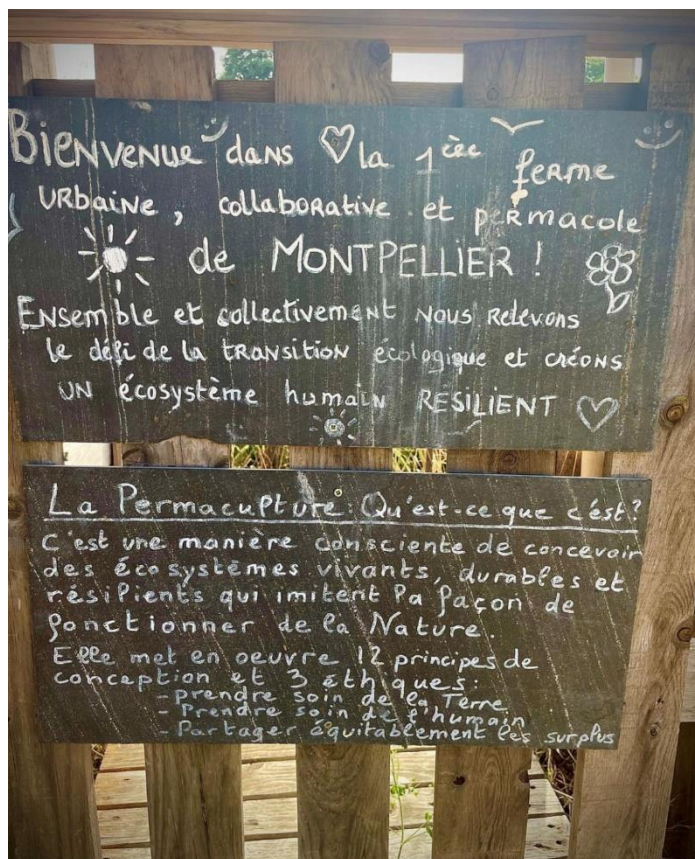 Bienvenue dans la 1ère ferme
urbaine, collaborative et permacole
de MONTPELLIER !
Ensemble et collectivement nous relevons
le défi de la transition écologique et créons
un écosystème humain RESILIENT
La Permaculture: Qu'est-ce que c'est?
C'est une manière consciente de concevoir
des écosystèmes vivants, durables et
résilients qui imitent la façon de
fonctionner de la Nature.
Elle met en oeuvre 12 principes de
conception et 3 éthiques:
- prendre soin de la Terre
- Prendre soin de l'humain
- Partager équitablement les surplus